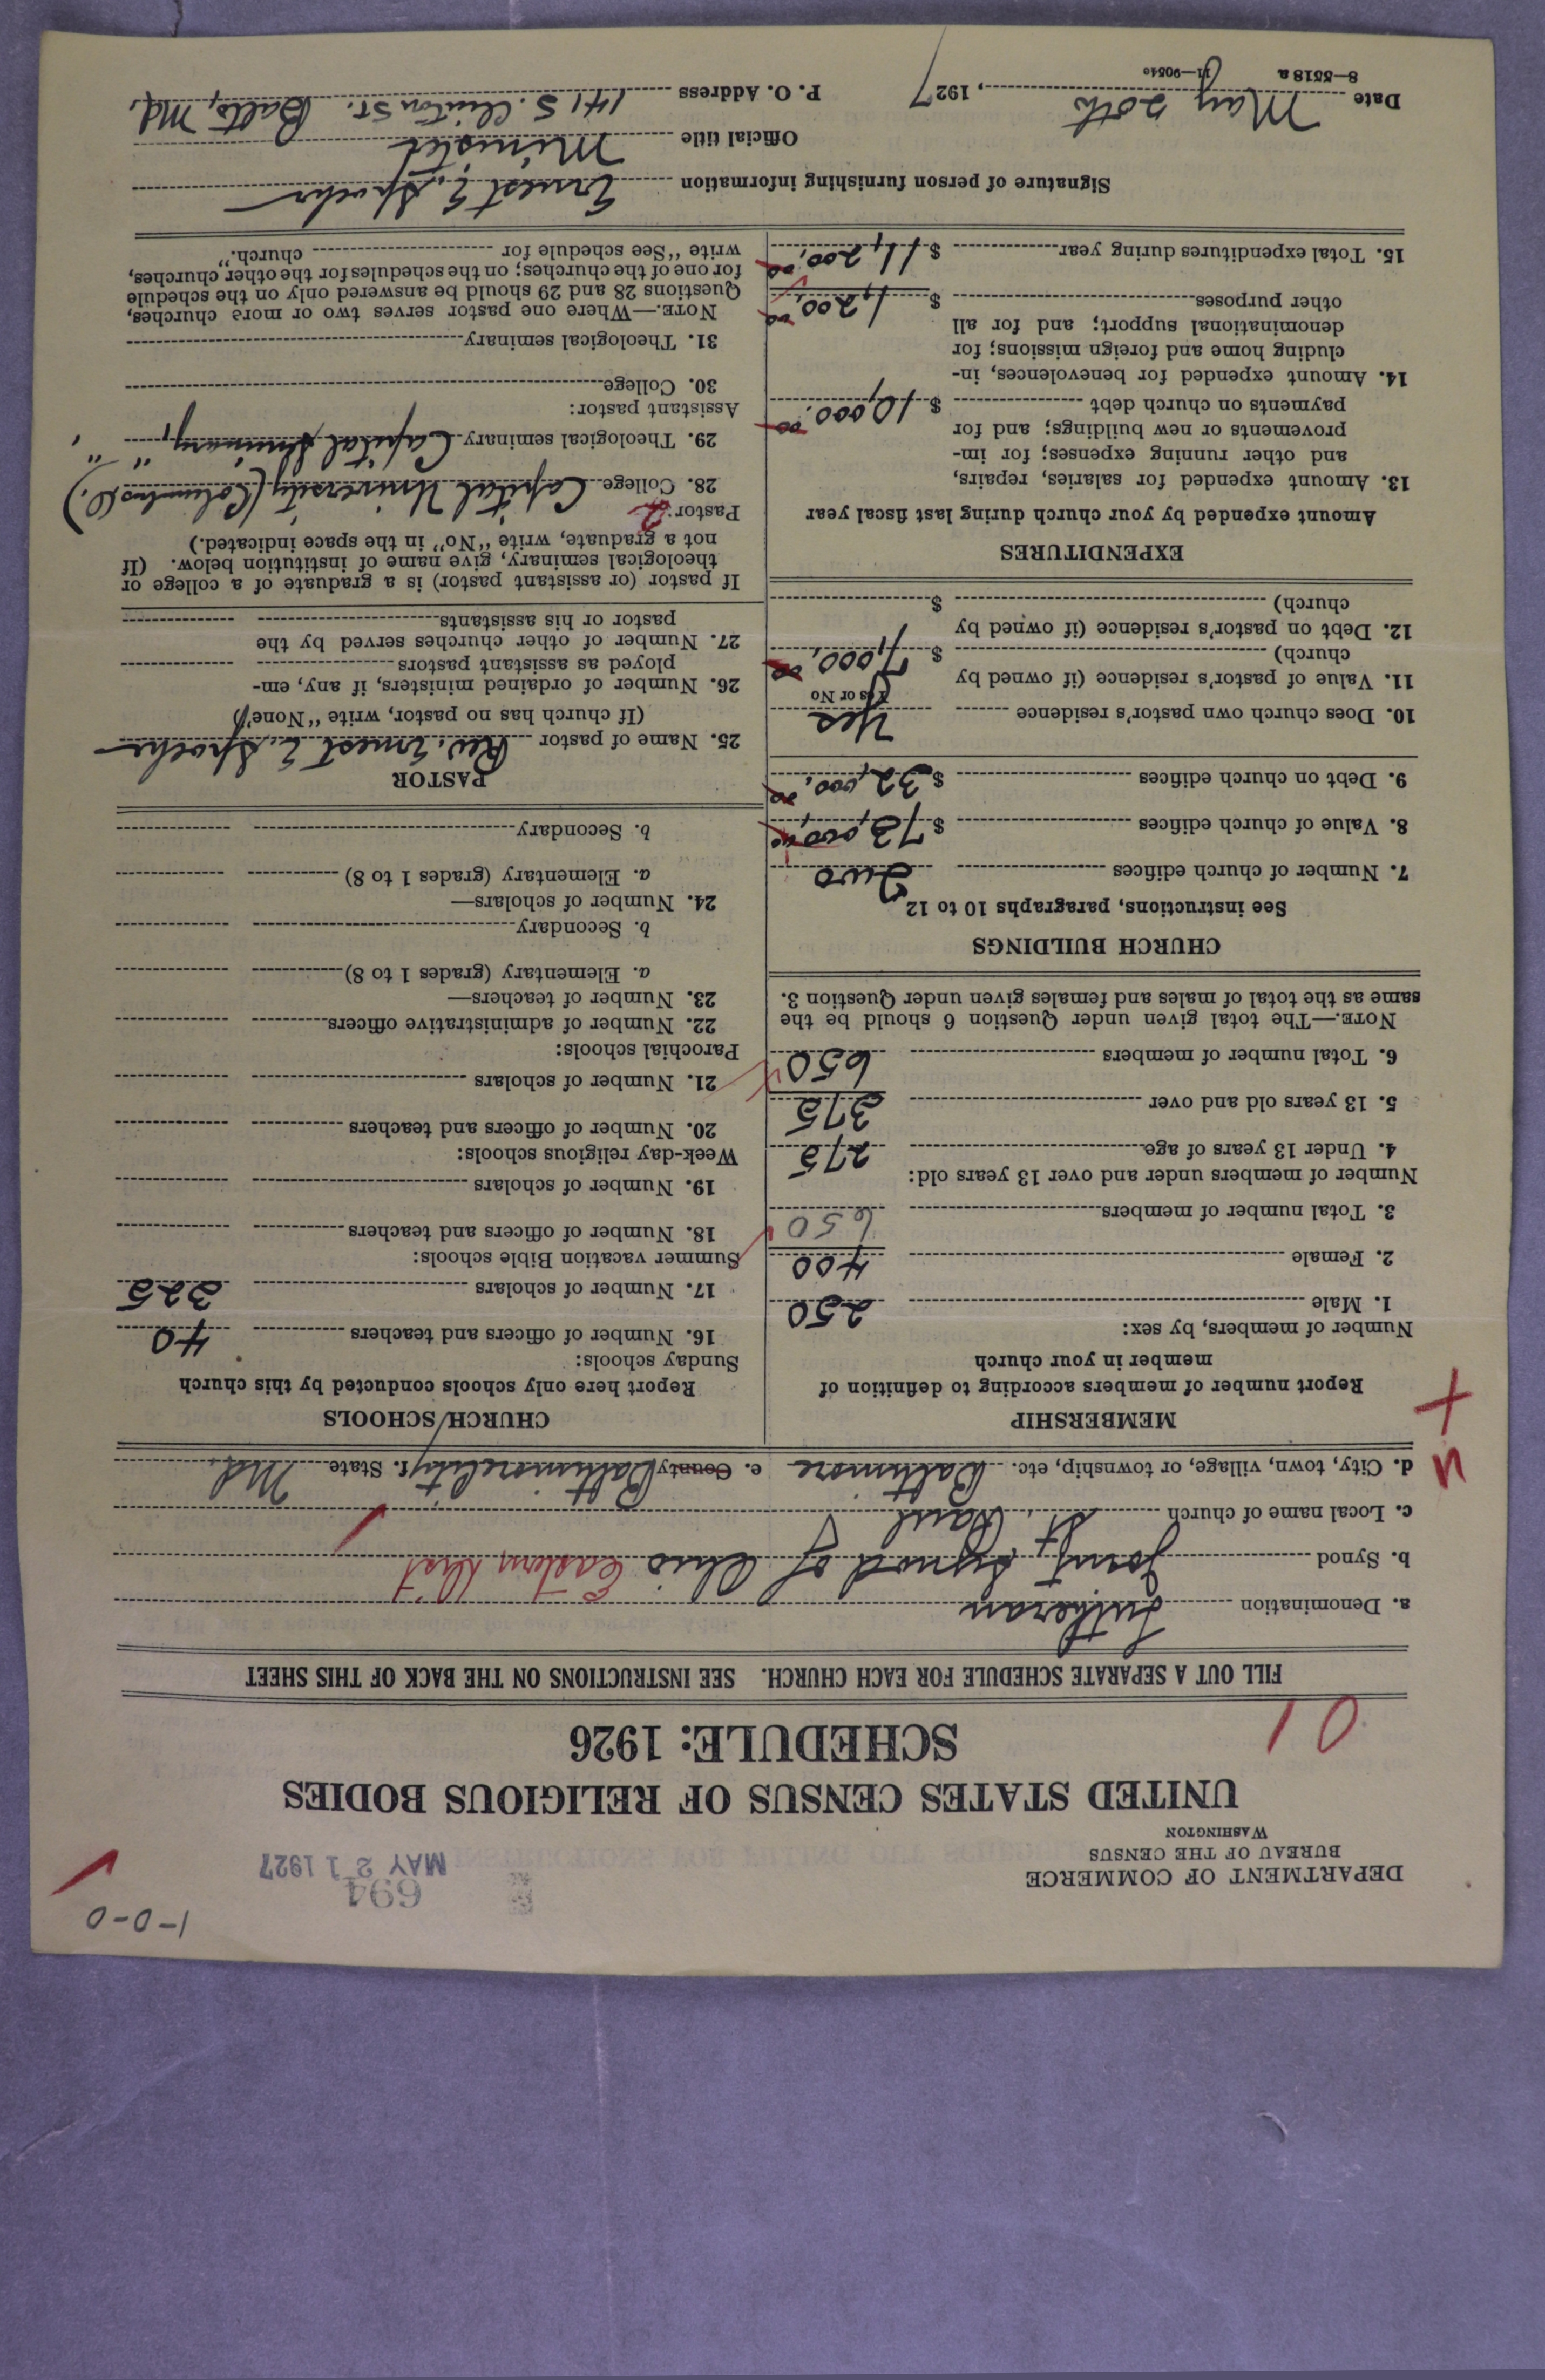 1-0-0
DEPARTMENT OF COMMERCE
BUREAU OF THE CENSUS
WASHINGTON
694
MAY 21 1927
UNITED STATES CENSUS OF RELIGIOUS BODIES
SCHEDULE: 1926
01
FILL OUT A SEPARATE SCHEDULE FOR EACH CHURCH. SEE INSTRUCTIONS ON THE BACK OF THIS SHEET
a. Denomination Lutheran
b. Synod Joint Synod of Ohio Eastern Dist
c. Local name of church St. Paul
d. City, town, village, or township, etc. Baltimore e. County Baltimore City f. State Md.
MEMBERSHIP
Report number of members according to definition of
member in your church
Number of members, by sex:
1. Male 250
2. Female 400
3. Total number of members 650
Number of members under and over 13 years old:
4. Under 13 years of age 275
5. 13 years old and over 375
6. Total number of members 650
NOTE.—The total given under Question 6 should be the
same as the total of males and females given under Question 3.
CHURCH BUILDINGS
See instructions, paragraphs 10 to 12
7. Number of church edifices Two
8. Value of church edifices $73,000.00
9. Debt on church edifices $32,000.00
10. Does church own pastor's residence Yes
Yes or No
11. Value of pastor's residence (if owned by
church) $7,000.00
12. Debt on pastor's residence (if owned by
church) $
EXPENDITURES
Amount expended by your church during last fiscal year
13. Amount expended for salaries, repairs,
and other running expenses; for im-
provements or new buildings; and for
payments on church debt $10,000.00
14. Amount expended for benevolences, in-
cluding home and foreign missions; for
denominational support; and for all
other purposes $1,200.00
15. Total expenditures during year $11,200.00
CHURCH SCHOOLS
Report here only schools conducted by this church
Sunday schools:
16. Number of officers and teachers 40
17. Number of scholars 325
Summer vacation Bible schools:
18. Number of officers and teachers
19. Number of scholars
Week-day religious schools:
20. Number of officers and teachers
21. Number of scholars
Parochial schools:
22. Number of administrative officers
23. Number of teachers—
a. Elementary (grades 1 to 8)
b. Secondary
24. Number of scholars—
a. Elementary (grades 1 to 8)
b. Secondary
PASTOR
25. Name of pastor Rev. Ernest E. Spoehr
(If church has no pastor, write "None")
26. Number of ordained ministers, if any, em-
ployed as assistant pastors
27. Number of other churches served by the
pastor or his assistants
If pastor (or assistant pastor) is a graduate of a college or
theological seminary, give name of institution below. (If
not a graduate, write "No" in the space indicated.)
Pastor: 2
28. College Capital University (Columbus O.)
29. Theological seminary Capital Seminary, " "
Assistant pastor:
30. College
31. Theological seminary
NOTE.—Where one pastor serves two or more churches,
Questions 28 and 29 should be answered only on the schedule
for one of the churches; on the schedules for the other churches,
write "See schedule for church."
Signature of person furnishing information Ernest E. Spoehr
Official title Minister
Date May 20th, 1927 P. O. Address 141 S. Clinton St. Balto, Md.
8—5518 a 11—9054a